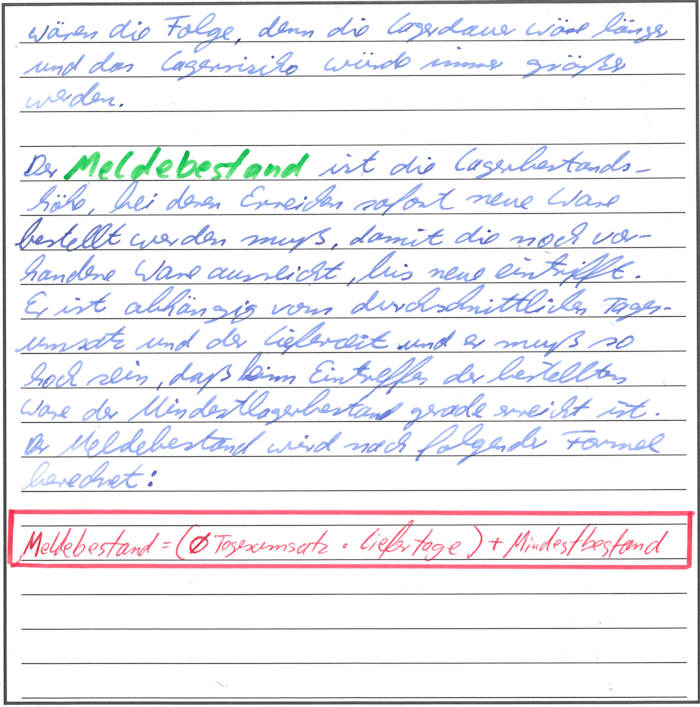 wären die Folge, denn die Lagerdauer wäre länger
und das Lagerrisiko würde immer größer
werden.
Der Meldebestand ist die Lagerbestands-
höhe, bei deren Erreichen sofort neue Ware
bestellt werden muß, damit die noch vor-
handene Ware ausreicht, bis neue eintrifft.
Er ist abhängig vom durchschnittlichen Tages-
umsatz und der Lieferzeit und er muß so
hoch sein, daß beim Eintreffen der bestellten
Ware der Mindestlagerbestand gerade erreicht ist.
Der Meldebestand wird nach folgender Formel
berechnet:
Meldebestand = (Ø Tagesumsatz · Liefertage) + Mindestbestand